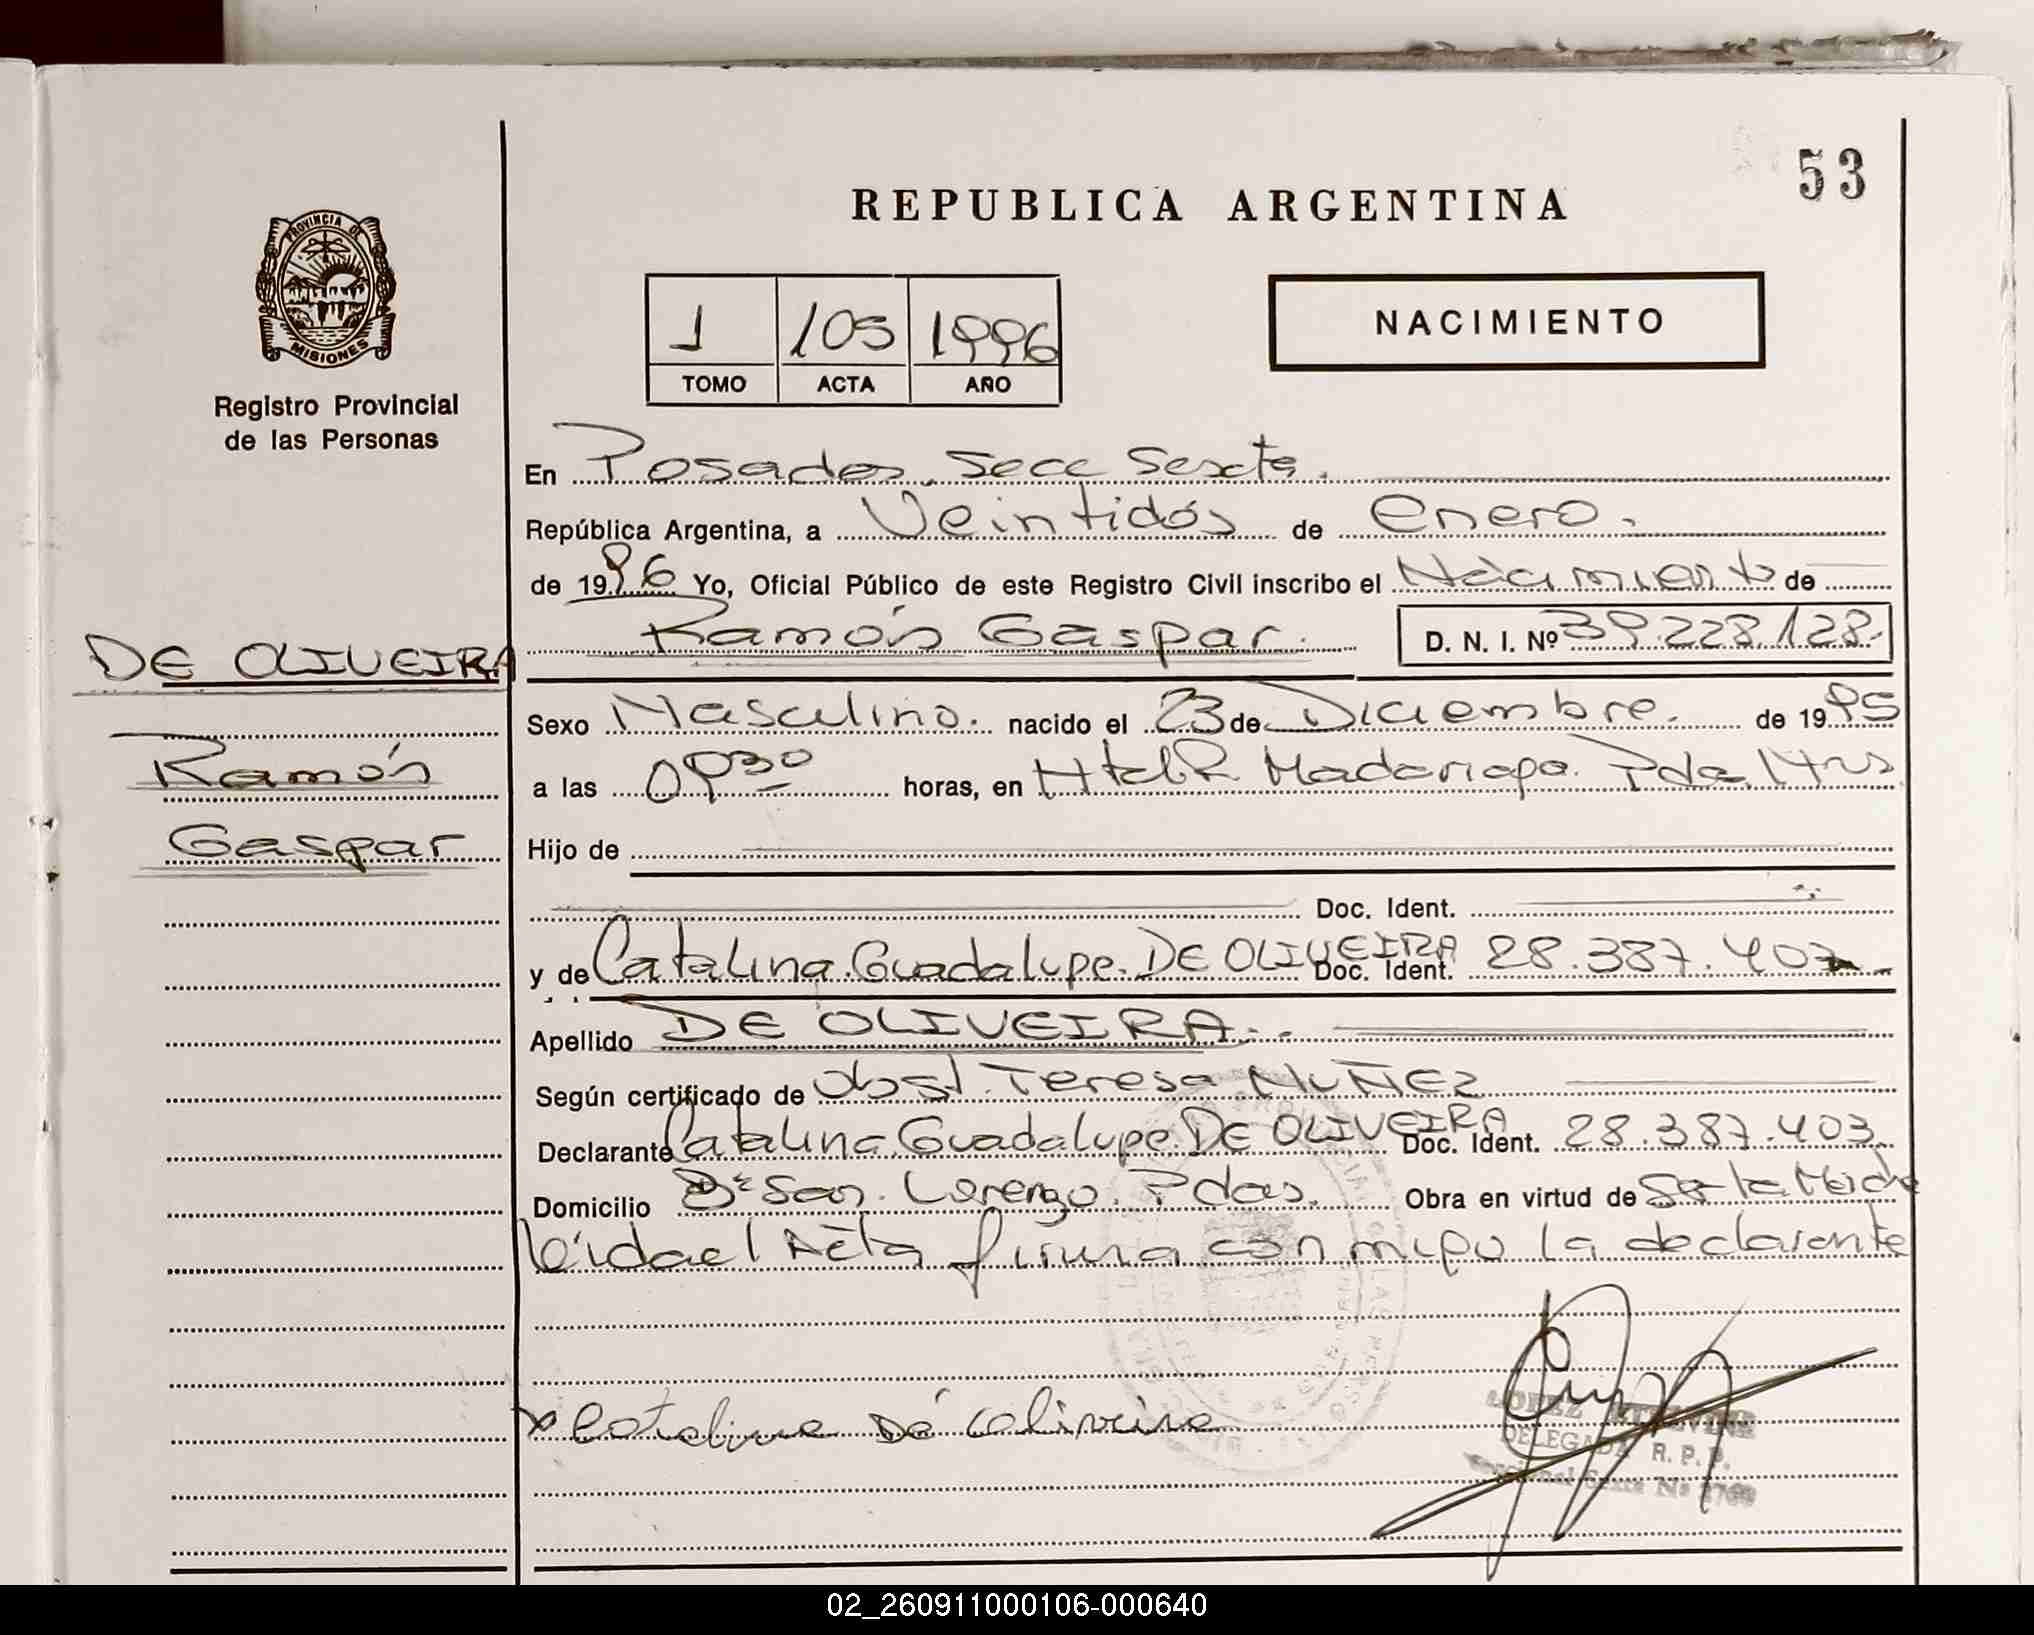 53
REPUBLICA ARGENTINA
PROVINCIA DE
MISIONES
Registro Provincial
de las Personas
1 105 1996
TOMO ACTA AÑO
NACIMIENTO
En Posadas. Secc Sexta.
República Argentina, a Veintidós de enero.
de 1996 Yo, Oficial Público de este Registro Civil inscribo el Nacimiento de
Ramón Gaspar. D. N. I. Nº 39.228.128.
DE OLIVEIRA
Ramón
Gaspar
Sexo Masculino. nacido el 23 de Diciembre. de 1995
a las 0930 horas, en Htal R Madariaga. Pdas Mns
Hijo de
Doc. Ident.
y de Catalina Guadalupe. DE OLIVEIRA Doc. Ident. 28.387.403
Apellido DE OLIVEIRA.
Según certificado de Obst. Teresa NUÑEZ
Declarante Catalina Guadalupe. DE OLIVEIRA Doc. Ident. 28.387.403
Domicilio Bº San Lorenzo. Pdas. Obra en virtud de ser la Madre
Leída el Acta firma conmigo la declarante
x Catalina De Oliveira
LOPEZ
DELEGADA R. P. P.
Seccional Sexta Nº 2769
02_260911000106-000640